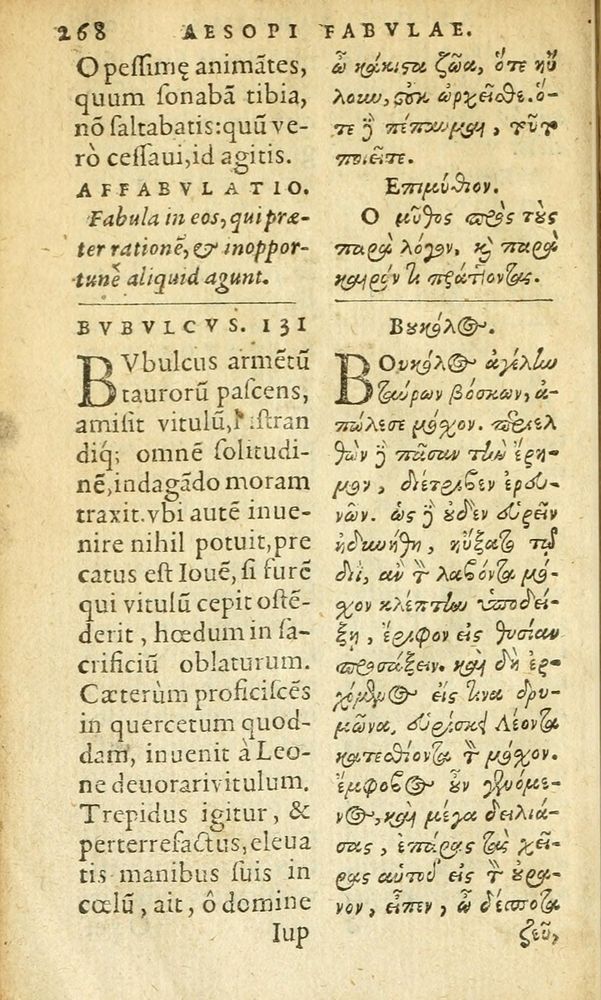 268 AESOPI FABVLAE.
O pessimę animātes,
quum sonabā tibia,
nō saltabatis:quū ve-
rò cessaui,id agitis.
AFFABVLATIO.
Fabula in eos, qui præ-
ter rationē, & inoppor-
tunè aliquid agunt.
BVBVLCVS. 131
BVbulcus armētū
taurorū pascens,
amisit vitulū,
diq; omnē solitudi-
nē,indagādo moram
traxit.vbi autē inue-
nire nihil potuit,pre
catus est Iouē, si furē
qui vitulū cepit ostē-
derit, hœdum in sa-
crificiū oblaturum.
Cæterùm proficiscēs
in quercetum quod-
dam, inuenit à Leo-
ne deuorari vitulum.
Trepidus igitur, &
perterrefactus,eleua
tis manibus suis in
cœlū, ait, ô domine
Iup
ὦ κάκιστα ζῶα, ὅτε ηὔ
λουν, οὐκ ὠρχεῖσθε. ὅ-
τε δὲ πέπαυμαι, τοῦτο
ποιεῖτε.
Ἐπιμύθιον.
Ο μῦθος πρὸς τοὺς
παρὰ λόγον, καὶ παρὰ
καιρόν τι πράττοντας.
Βουκόλος.
ΒΟυκόλος ἀγέλην
ταύρων βόσκων, ἀ-
πώλεσε μόσχον. περιελ
θὼν δὲ πᾶσαν τὴν ἔρη-
μον, διέτριβεν ἐρευ-
νῶν. ὡς δὲ οὐδὲν εὑρεῖν
ἠδυνήθη, ηὔξατο τῷ
διῒ, ἂν τὸν λαβόντα μό-
χον κλέπτην ὑποδεί-
ξῃ, ἔριφον εἰς θυσίαν
προσάξειν. καὶ δὴ ἐρ-
χόμενος εἴς τινα δρυ-
μῶνα, εὑρίσκει Λέοντα
κατεσθίοντα τὸν μόσχον.
ἔμφοβος οὖν γενόμε-
νος, καὶ μέγα δειλιά-
σας, ἐπάρας τὰς χεῖ-
ρας αὐτοῦ εἰς τὸν οὐρα-
νὸν, εἶπεν, ὦ δέσποτα
ζεῦ,